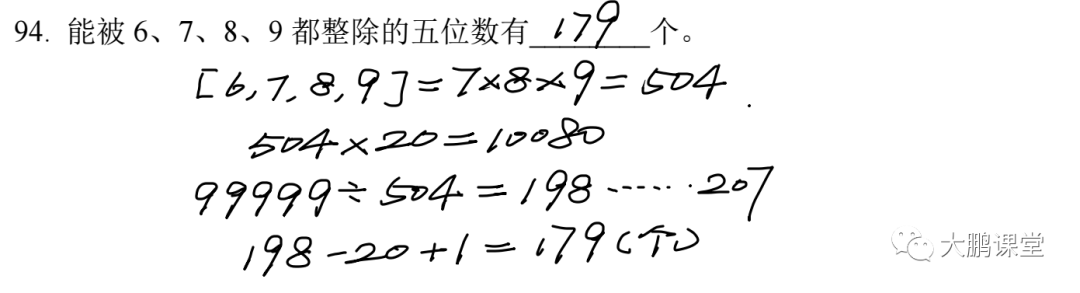 94. 能被 6、7、8、9 都整除的五位数有 179 个。
[6,7,8,9]=7×8×9=504
504×20=10080
99999÷504=198……207
198-20+1=179(个)
大鹏课堂